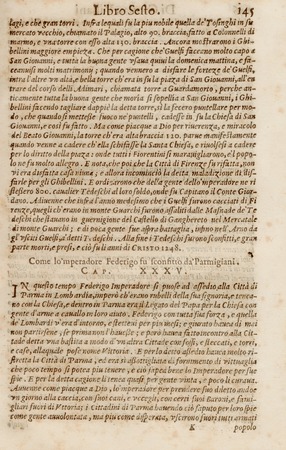 Libro Sesto. 145
lagi, e che gran torri. Infra lequali fu la piu nobile quella de Tosinghi in su
mercato vecchio, chiamato il Palagio, alto 90. braccia, fatto a Colonnelli di
marmo, e vna torre con esso alta 130. braccia. Ancora mostrarono i Ghi-
bellini maggiore empiezza. Che per cagione che Guelfi faceano molto capo a
San Giouanni, e tutta la buona gente vsaua quiui la domenica mattina, e fa-
ceansi molti matrimoni; quando vennero a disfare le fortezze de Guelfi,
intra l'altre vna torre molto grossa e bella, ch'era in su la piazza di San Giouanni, all'en-
trare del corso delli Adimari, chiamata torre a Guardamorto, perche an-
ticamente tutta la buona gente che moria si sepelliua a San Giouanni, i Ghi-
bellini faccendo tagliare dappiè la detta torre, sì la feceno puntellare per mo-
do, che quando si mettesse fuoco ne puntelli, cadesse in su la Chiesa di San
Giouanni, e così fu fatto. Ma come piacque a Dio per riuerenza, e miracolo
del Beato Giouanni, la torre ch'era alta braccia 120. parue manifestamente
quando venne a cadere ch'ella schifasse la Santa Chiesa, e riuolsesi a cadere
per lo diritto della piazza: onde tutti i Fiorentini si marauigliarono, e il popo-
lo ne fu molto allegro. E nota, che poiche la Città di Firenze fu rifatta, non
vi era disfatta casa niuna; e allora incominciò la detta maladizione di disfar-
le per gli Ghibellini. E ordinarono che della gente dello'mperadore ne ri-
tessero 800. caualieri Tedeschi al loro soldo, onde fu Capitano il Conte Gior-
dano. Aduenne che infra l'anno medesimo che i Guelfi furono cacciati di Fi-
renze, quegli ch'erano in Montevarchi furono assaliti dalle Masnade de Te-
deschi che stauano in guernigione del Castello di Gangbereto in sul Mercatale
di monte Guarchi: e di poca gente fue aspra battaglia, infino nell'Arno da
gl'vsciti Guelfi, a detti Tedeschi. Alla fine i Tedeschi furono sconfitti, e gran
parte morti, presi, e ciò fu li anni di CHRISTO 1248.
Come lo'mperadore Federigo fu sconfitto da Parmigiani.
CAP. XXXV.
IN questo tempo Federigo Imperadore si puose ad assedio alla Città di
Parma in Lombardia, imperò ch'erano ribelli della sua signoria, e tenea-
no con la Chiesa, e dentro in Parma era il Legato del Papa per la Chiesa con
gente d'arme a cauallo in loro aiuto. Federigo con tutta sua forza, e quella
de Lombardi v'era d'intorno, e stetteui per piu mesi; e giurato hauea di mai
non partirsene, se prima non l'hauesse; e però hauea fatto incontro alla Cit-
tade detta vna bastita a modo d'vn altra Cittade con fossi, e steccati, e torri,
e case, alla quale pose nome Vittoria. E per lo detto assedio hauea molto ri-
stretta la Città di Parma, ed era sì assottigliata di fornimento di vittuaglia
che poco tempo si potea piu tenere, e ciò sapea bene lo'mperadore per sue
spie. E per la detta cagione li tenea quasi per gente vinta, e poco li curaua.
Auuenne come piacque a Dio, lo'mperadore per prendere suo diletto andoe
vn giorno alla caccia, con suoi cani, e vccegli, con certi suoi Baroni, e fami-
gliari fuori di Vittoria; i Cittadini di Parma hauendo ciò saputo per loro spie
come gente auuolontata, ma piu come disperata, vscirono fuori tutti armati
K popolo